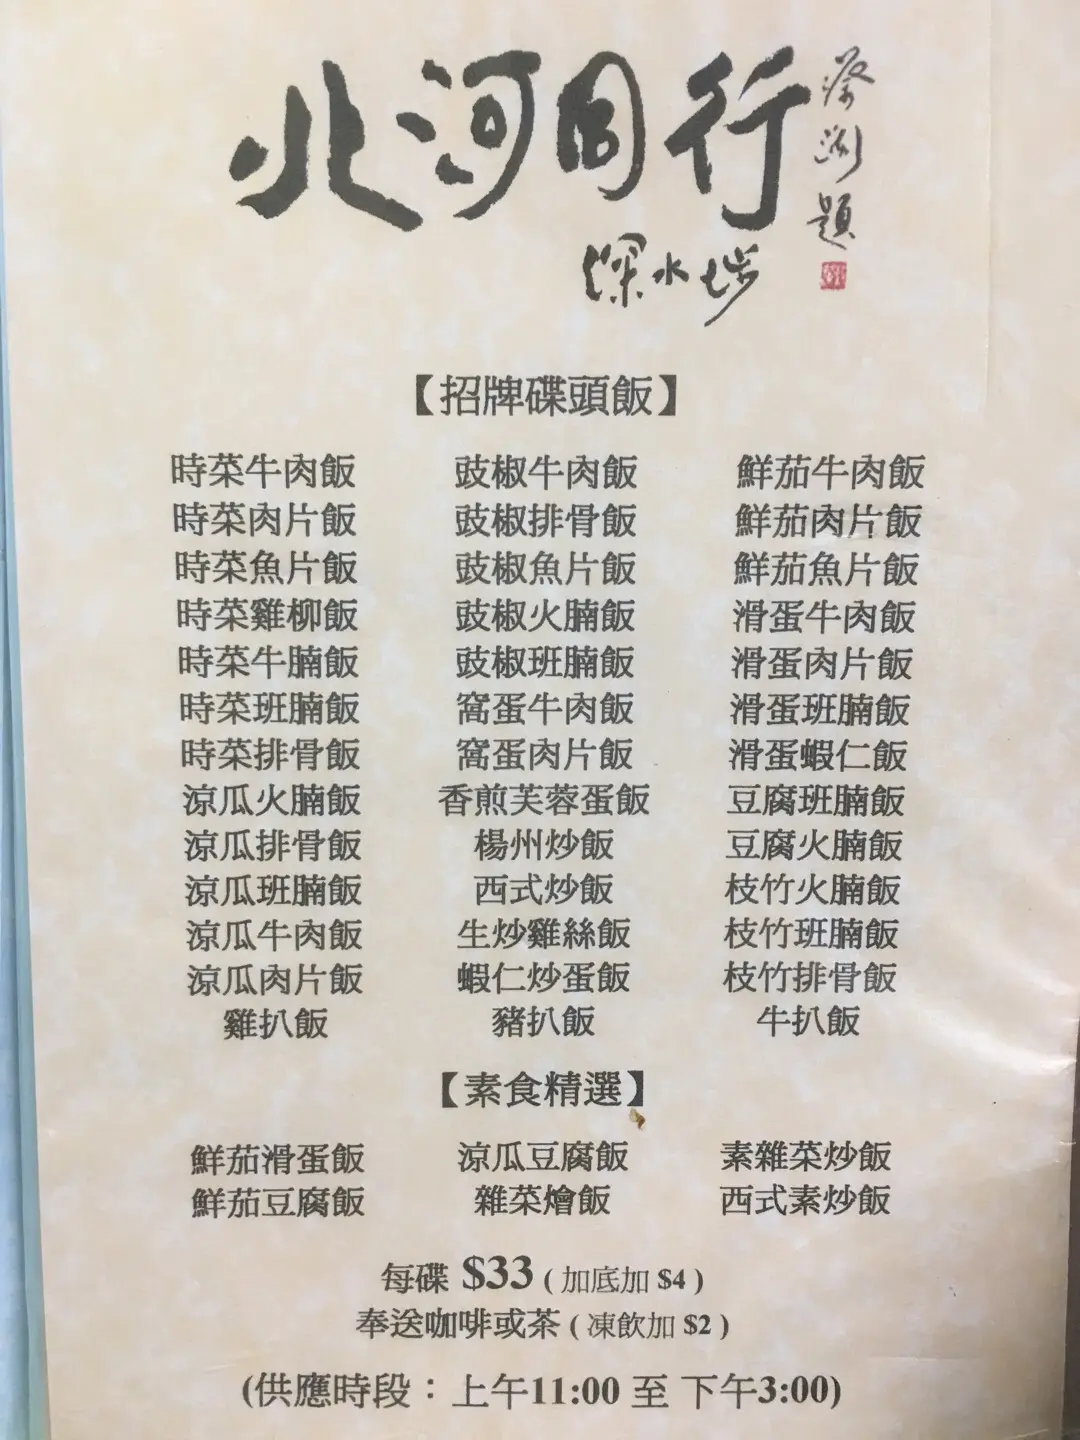 北河同行
蔡瀾題
深水埗
【招牌碟頭飯】
時菜牛肉飯 豉椒牛肉飯 鮮茄牛肉飯
時菜肉片飯 豉椒排骨飯 鮮茄肉片飯
時菜魚片飯 豉椒魚片飯 鮮茄魚片飯
時菜雞柳飯 豉椒火腩飯 滑蛋牛肉飯
時菜牛腩飯 豉椒班腩飯 滑蛋肉片飯
時菜班腩飯 窩蛋牛肉飯 滑蛋班腩飯
時菜排骨飯 窩蛋肉片飯 滑蛋蝦仁飯
涼瓜火腩飯 香煎芙蓉蛋飯 豆腐班腩飯
涼瓜排骨飯 楊州炒飯 豆腐火腩飯
涼瓜班腩飯 西式炒飯 枝竹火腩飯
涼瓜牛肉飯 生炒雞絲飯 枝竹班腩飯
涼瓜肉片飯 蝦仁炒蛋飯 枝竹排骨飯
雞扒飯 豬扒飯 牛扒飯
【素食精選】
鮮茄滑蛋飯 涼瓜豆腐飯 素雜菜炒飯
鮮茄豆腐飯 雜菜燴飯 西式素炒飯
每碟 $33 ( 加底加 $4 )
奉送咖啡或茶 ( 凍飲加 $2 )
(供應時段：上午11:00 至 下午3:00)